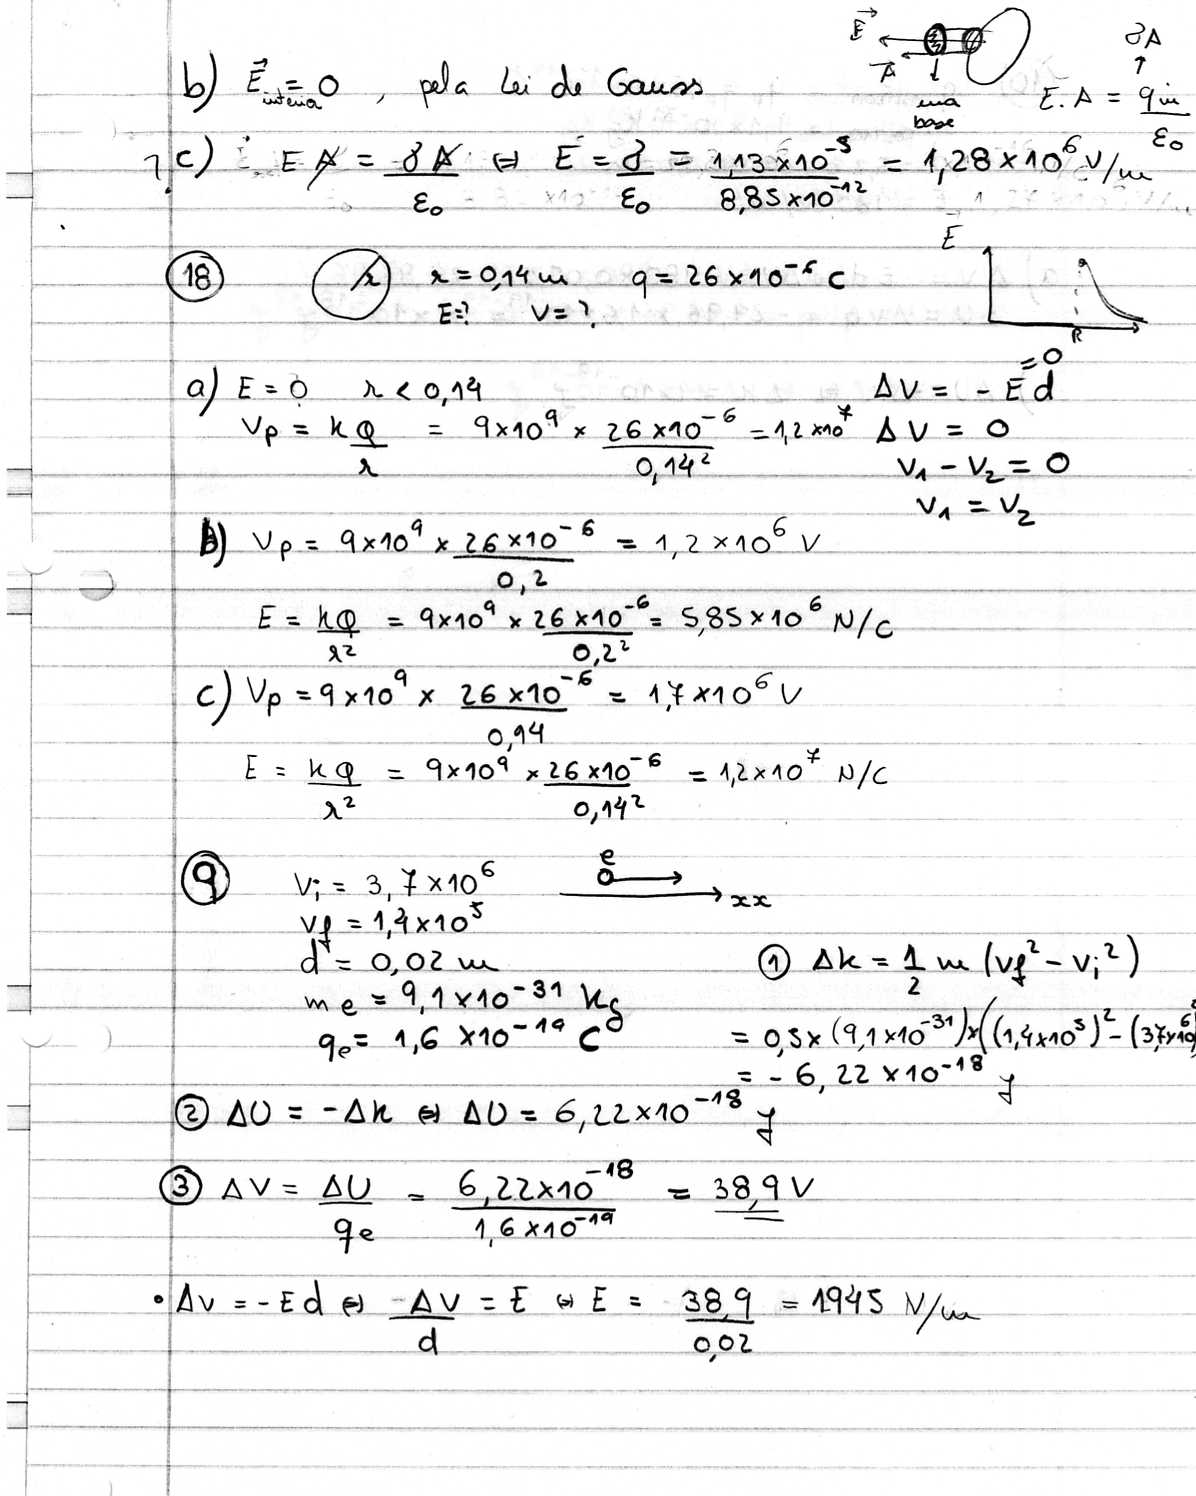 E⃗
A⃗
uma base
σA
↑
b) E⃗ interior = 0 , pela Lei de Gauss
E. A = qin/ε₀
c) E A = σA/ε₀ ⇔ E = σ/ε₀ = 1,13×10⁻⁵/8,85×10⁻¹² = 1,28×10⁶ V/m
18 r r = 0,14 m q = 26×10⁻⁶ C
E=? V=?
E
R
a) E = 0 r < 0,14 ΔV = - E d =0
Vp = kQ/r = 9×10⁹ × 26×10⁻⁶/0,14² = 1,2×10⁷ ΔV = 0
V₁ - V₂ = 0
V₁ = V₂
b) Vp = 9×10⁹ × 26×10⁻⁶/0,2 = 1,2×10⁶ V
E = kQ/r² = 9×10⁹ × 26×10⁻⁶/0,2² = 5,85×10⁶ N/C
c) Vp = 9×10⁹ × 26×10⁻⁶/0,14 = 1,7×10⁶ V
E = kQ/r² = 9×10⁹ × 26×10⁻⁶/0,14² = 1,2×10⁷ N/C
9 Vi = 3,7×10⁶ e
xx
Vf = 1,4×10⁵
d = 0,02 m ① Δk = 1/2 m (Vf² - Vi²)
me = 9,1×10⁻³¹ kg
qe = 1,6×10⁻¹⁹ C = 0,5×(9,1×10⁻³¹)×((1,4×10⁵)² - (3,7×10⁶)²
= - 6,22×10⁻¹⁸ J
② ΔU = -Δk ⇔ ΔU = 6,22×10⁻¹⁸ J
③ ΔV = ΔU/qe = 6,22×10⁻¹⁸/1,6×10⁻¹⁹ = 38,9 V
• ΔV = -Ed ⇔ -ΔV/d = E ⇔ E = 38,9/0,02 = 1945 N/m